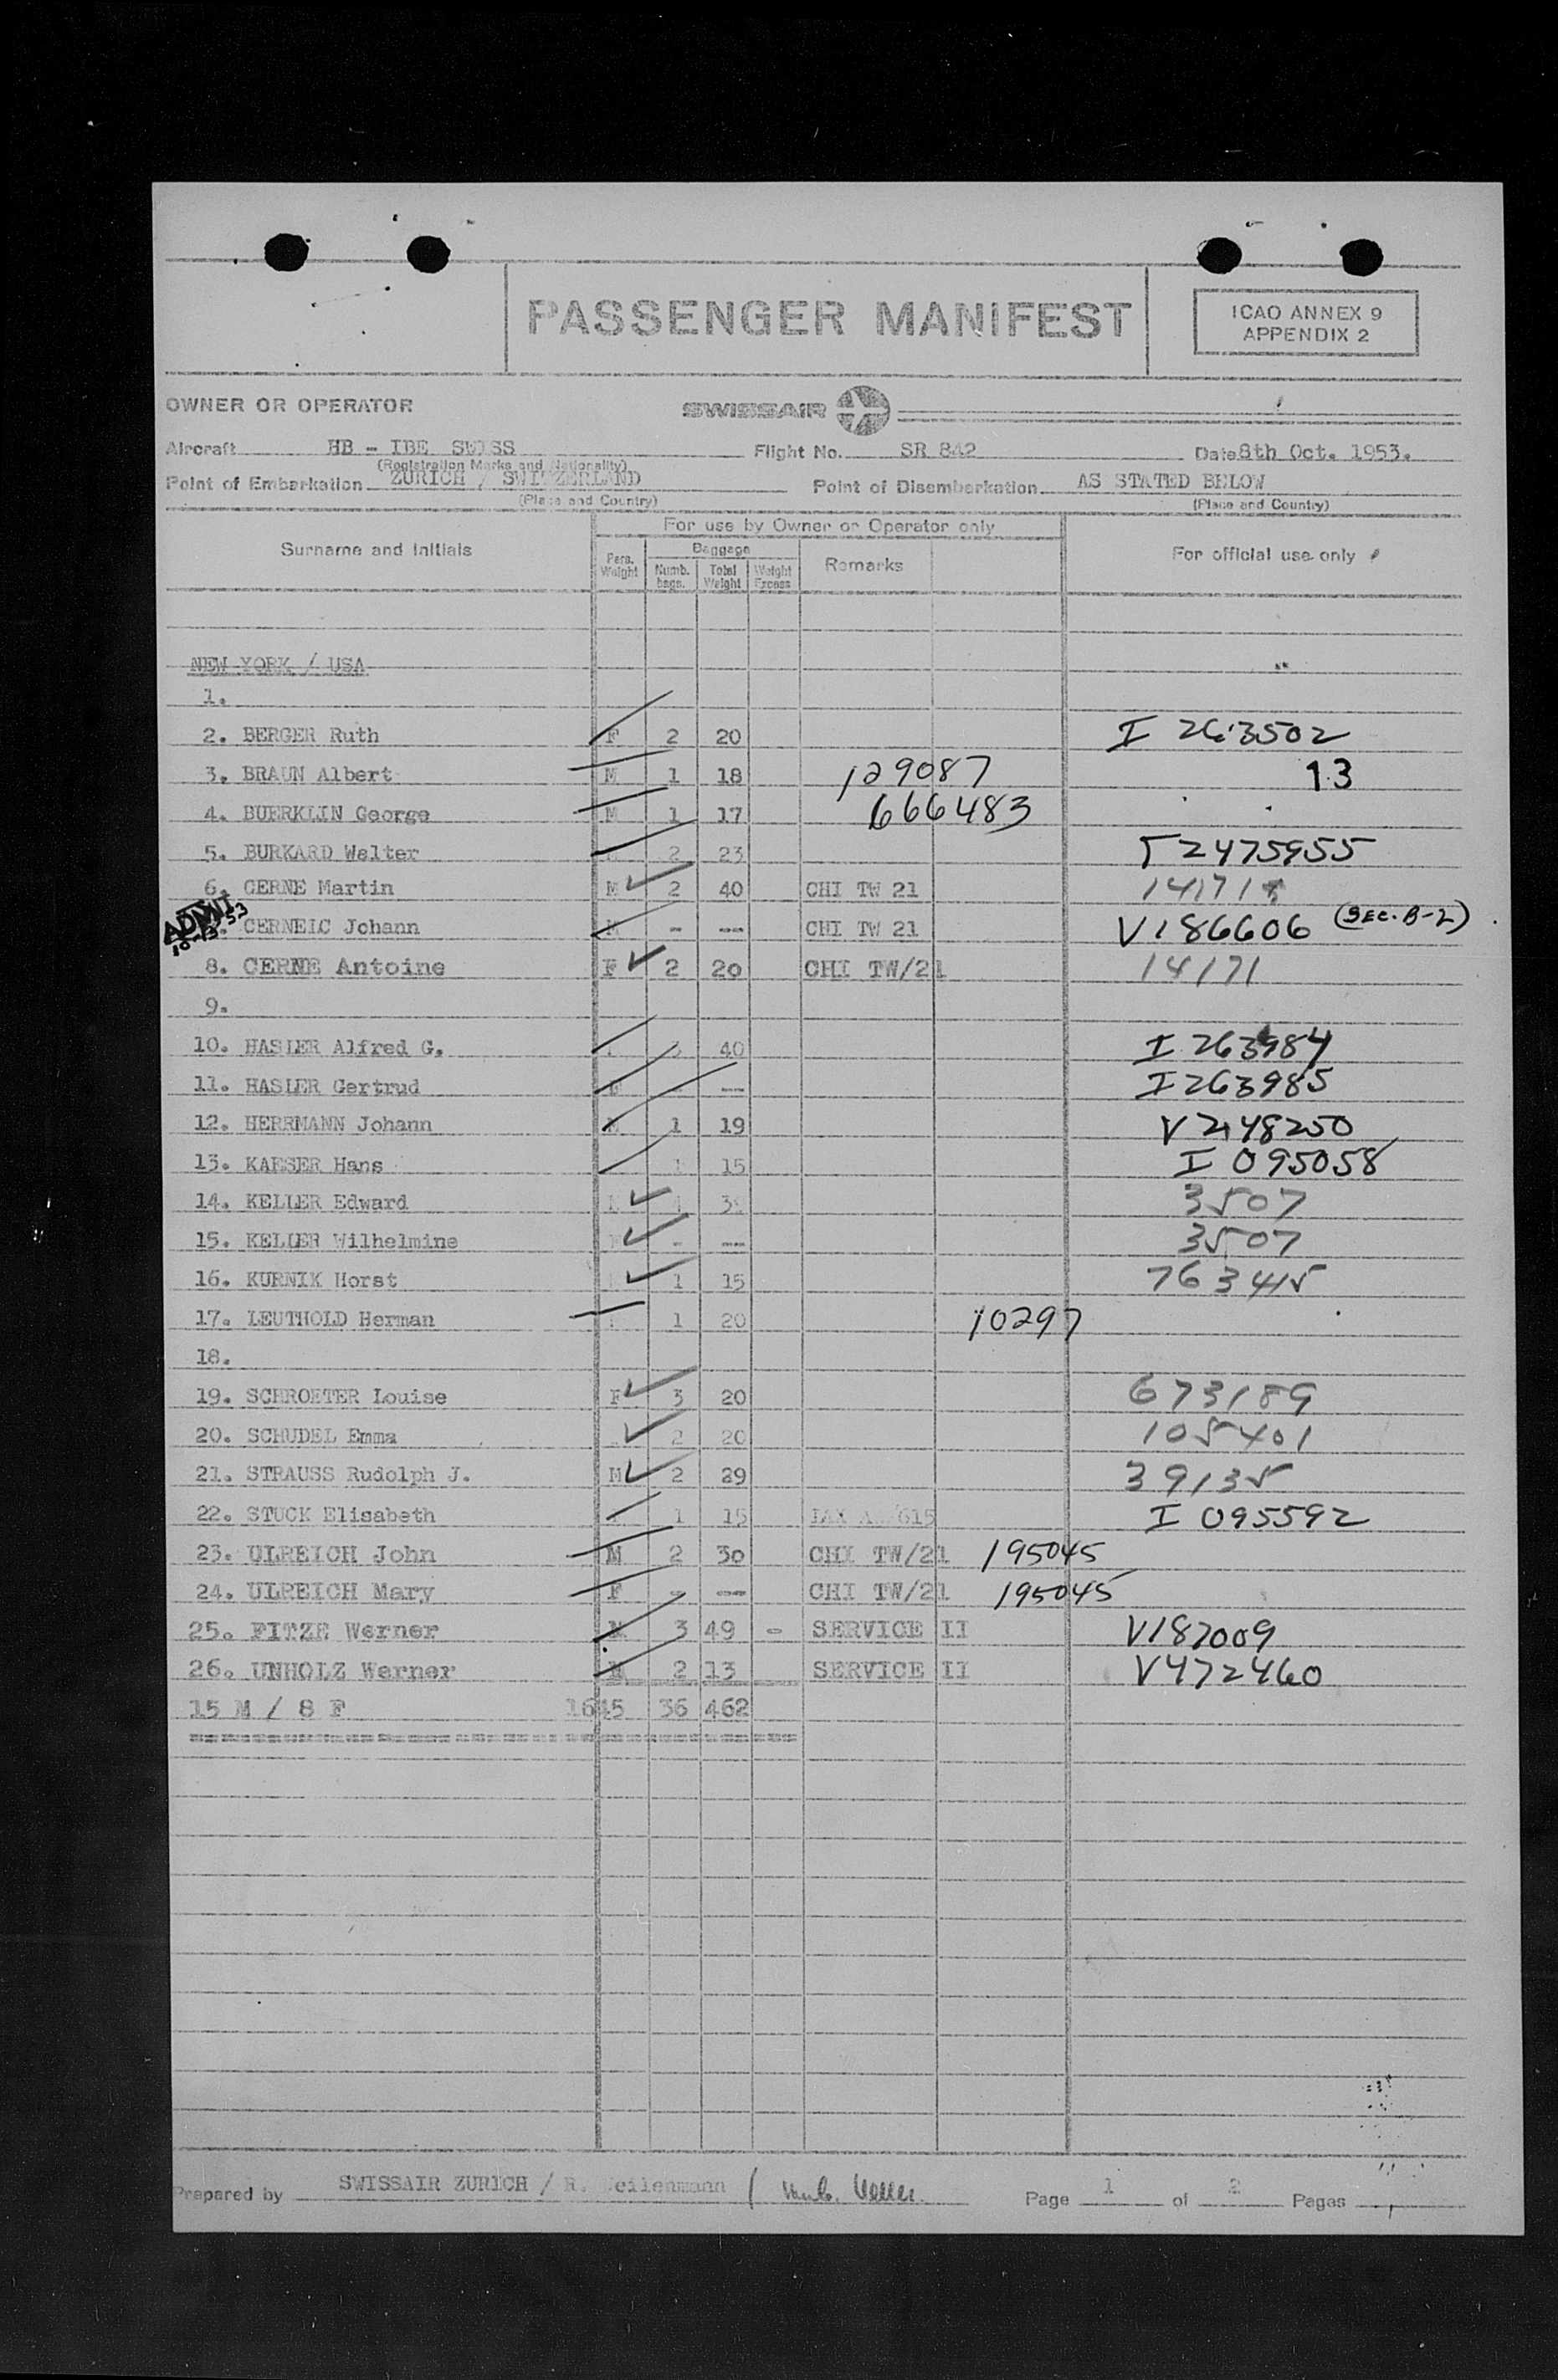 PASSENGER MANIFEST
ICAO ANNEX 9
APPENDIX 2
OWNER OR OPERATOR SWISSAIR
Aircraft HB - IBE SWISS Flight No. SR 842 Date 8th Oct. 1953.
(Registration Marks and Nationality)
Point of Embarkation ZURICH / SWITZERLAND Point of Disembarkation AS STATED BELOW
(Place and Country) (Place and Country)
For use by Owner or Operator only
Surname and initials Pass. Weight Baggage Numb. bags. Total Weight Weight Excess Remarks For official use only
NEW YORK / USA
1.
2. BERGER Ruth F 2 20 I 263502
3. BRAUN Albert M 1 18 129087 13
4. BUERKLIN George M 1 17 666483
5. BURKARD Walter 2 23 T2475955
6. CERNE Martin M 2 40 CHI TW 21 14171
ADMIT 10-13-53 CERNEIC Johann M - -- CHI TW 21 V186606 (SEC. B-2)
8. CERNE Antoine F 2 20 CHI TW/21 14171
9.
10. HASLER Alfred G. 40 I 263984
11. HASLER Gertrud F -- I263985
12. HERRMANN Johann M 1 19 V248250
13. KAESER Hans 1 15 I 095058
14. KELLER Edward 3507
15. KELLER Wilhelmine - -- 3507
16. KURNIK Horst 1 15 763415
17. LEUTHOLD Herman 1 20 10297
18.
19. SCHROETER Louise F 3 20 673189
20. SCHUDEL Emma 2 20 105401
21. STRAUSS Rudolph J. M 2 29 39135
22. STUCK Elisabeth 1 15 615 I 095592
23. ULREICH John M 2 30 CHI TW/21 195045
24. ULREICH Mary F - -- CHI TW/21 195045
25. FITZE Werner M 3 49 - SERVICE II V187009
26. UNHOLZ Werner M 2 13 SERVICE II V472460
15 M / 8 F 1645 36 462
Prepared by SWISSAIR ZURICH / R. Weilenmann / Page 1 of 2 Pages